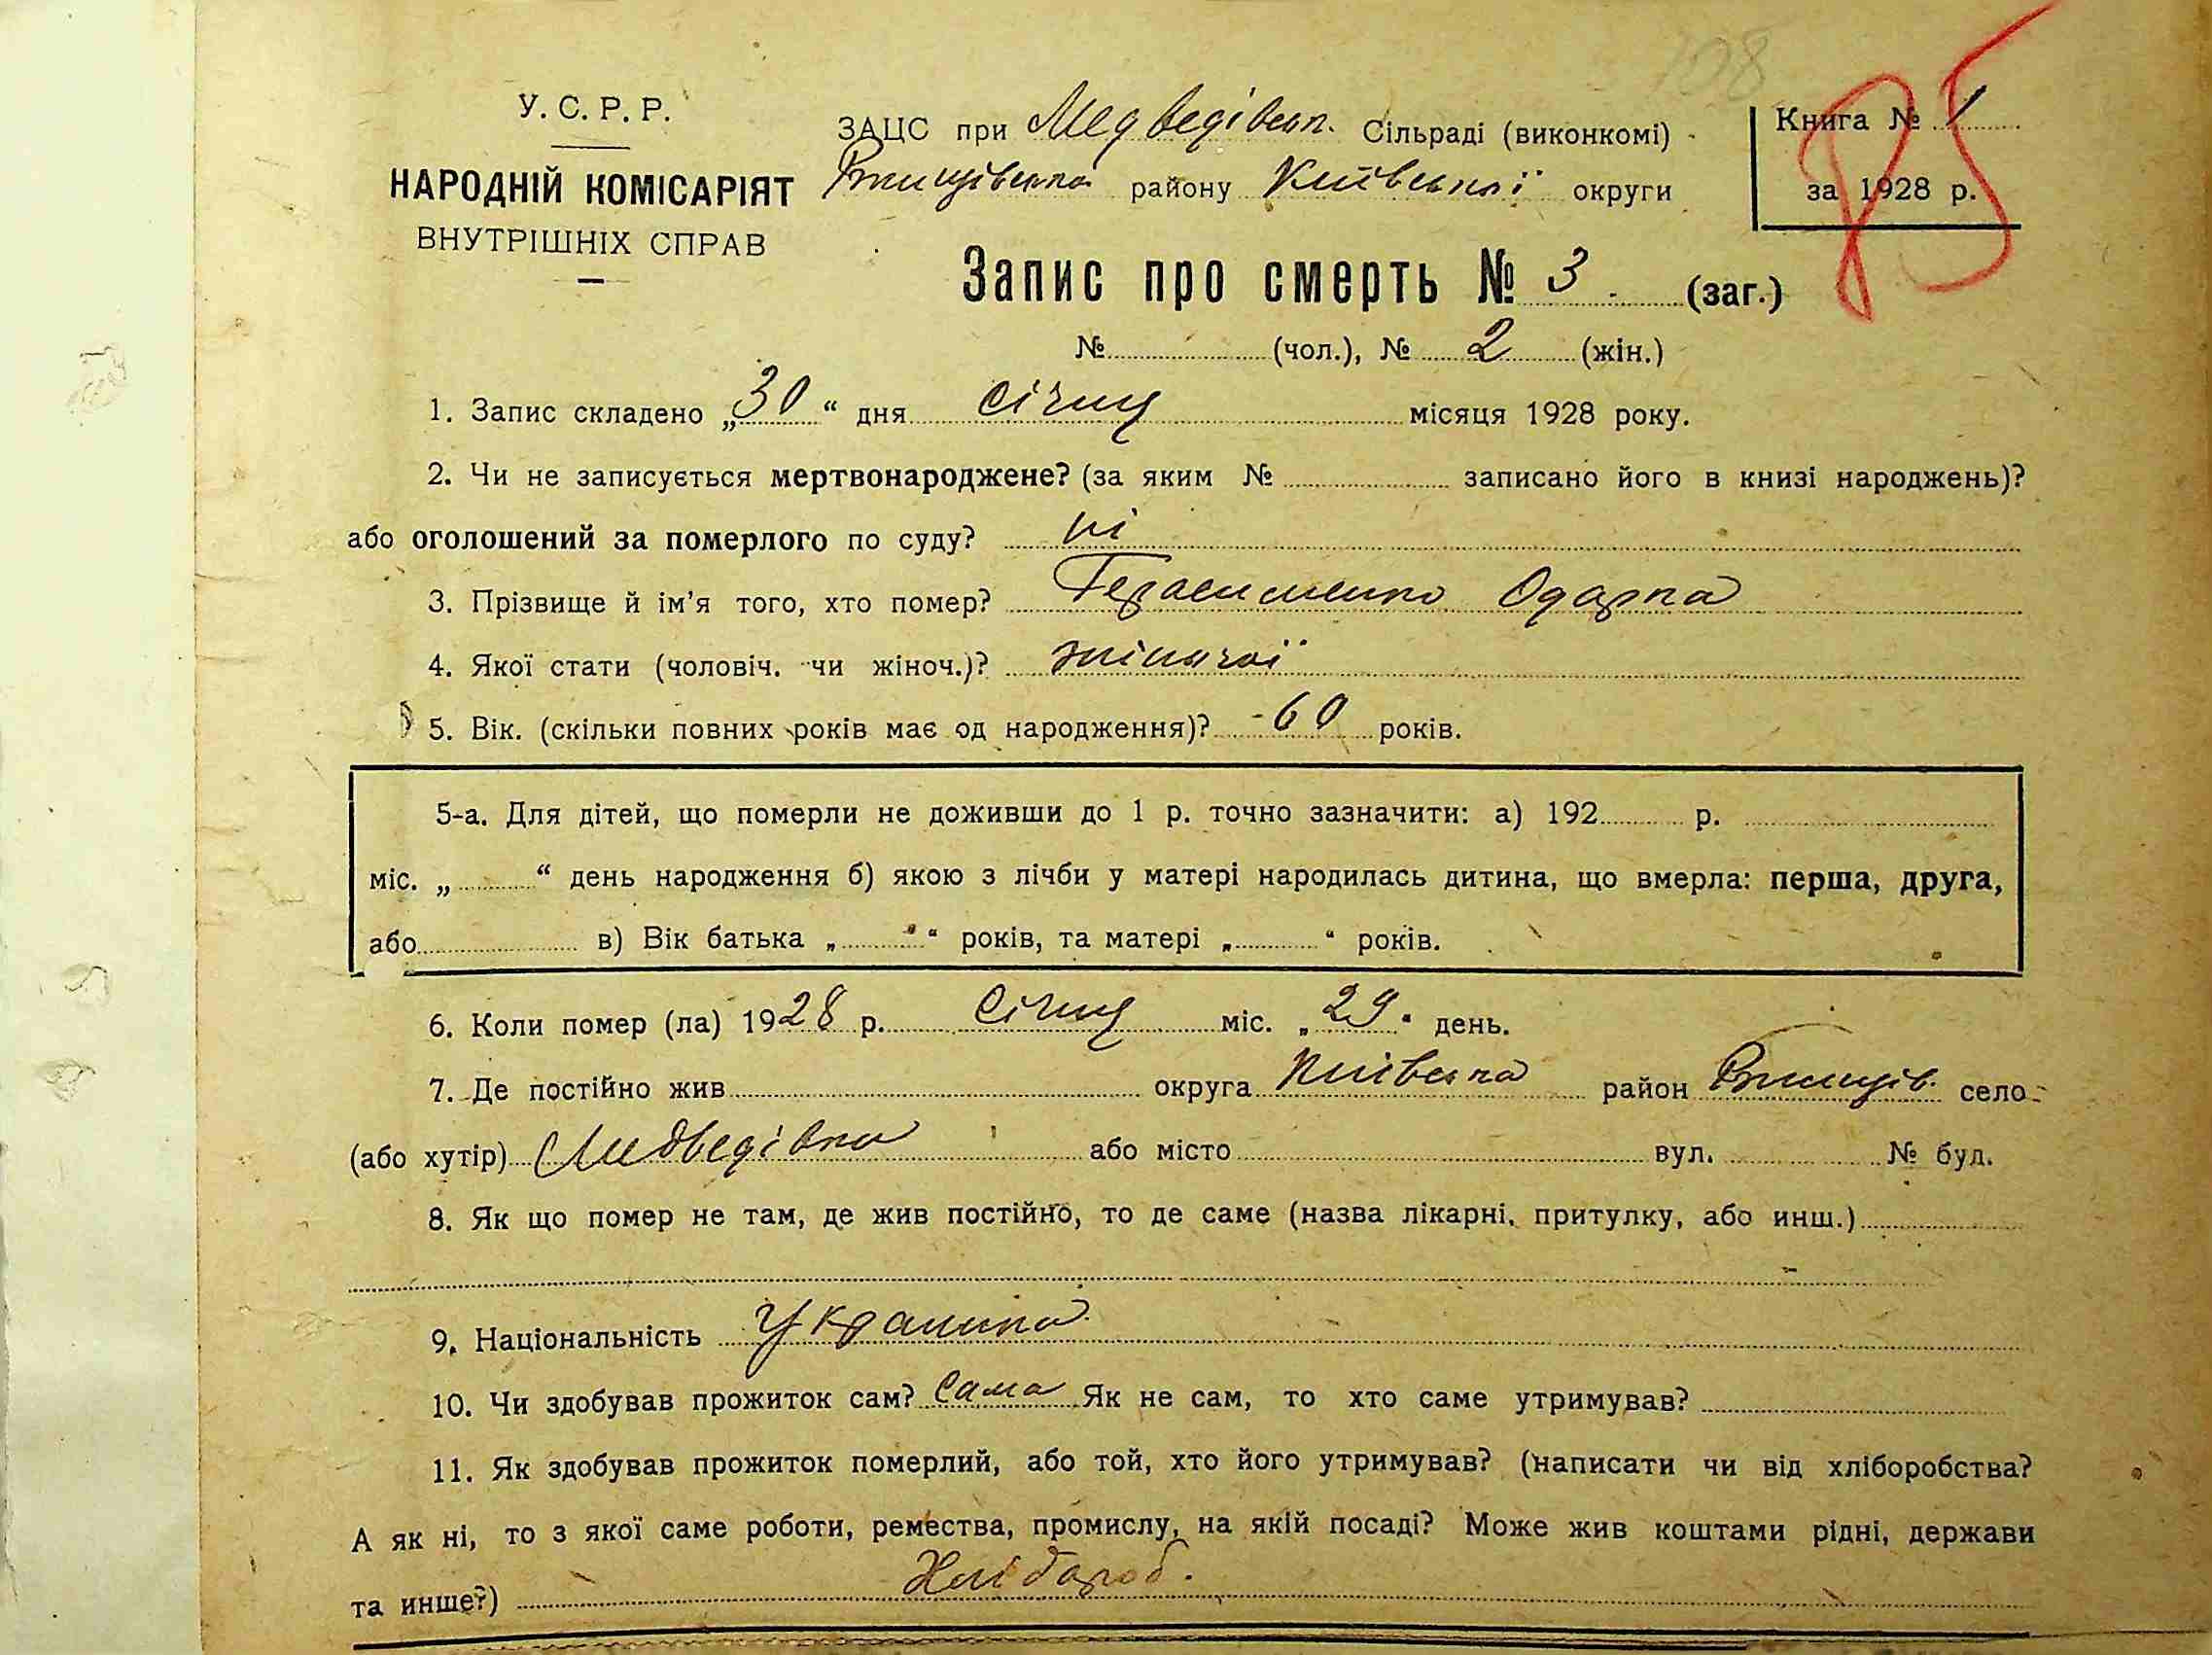 108
85
У. С. Р. Р.
НАРОДНІЙ КОМІСАРІЯТ
ВНУТРІШНІХ СПРАВ
ЗАЦС при Медведівськ. Сільраді (виконкомі)
Ржищівська району Київської округи
Книга № 1
за 1928 р.
Запис про смерть № 3 (заг.)
№ (чол.), № 2 (жін.)
1. Запис складено „30“ дня січня місяця 1928 року.
2. Чи не записується мертвонароджене? (за яким № записано його в книзі народжень)?
або оголошений за померлого по суду? ні
3. Прізвище й ім’я того, хто помер? Герасименко Одарка
4. Якої стати (чоловіч. чи жіноч.)? жіночої
5. Вік. (скільки повних років має од народження)? 60 років.
5-а. Для дітей, що померли не доживши до 1 р. точно зазначити: а) 192 р.
міс. „ “ день народження б) якою з лічби у матері народилась дитина, що вмерла: перша, друга,
або в) Вік батька „ “ років, та матері „ “ років.
6. Коли помер (ла) 1928 р. січня міс. „29“ день.
7. Де постійно жив округа Київська район Ржищів. село
(або хутір) Медведівка або місто вул. № буд.
8. Як що помер не там, де жив постійно, то де саме (назва лікарні, притулку, або инш.)
9. Національність Українка
10. Чи здобував прожиток сам? Сама Як не сам, то хто саме утримував?
11. Як здобував прожиток померлий, або той, хто його утримував? (написати чи від хліборобства?
А як ні, то з якої саме роботи, ремества, промислу, на якій посаді? Може жив коштами рідні, держави
та инше?) Хлібороб.